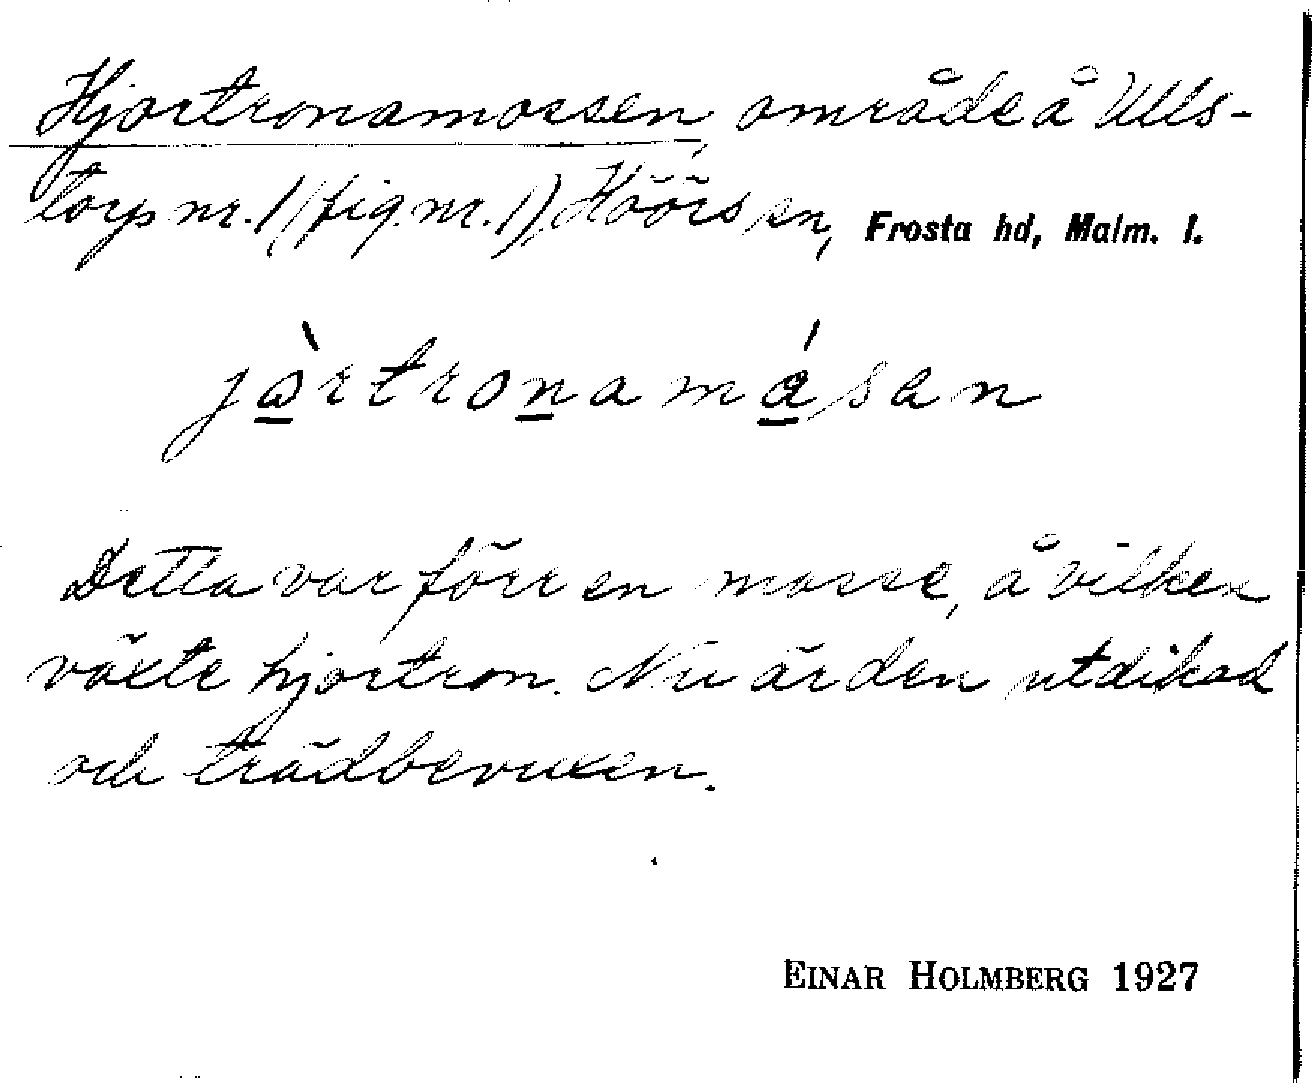 Hjortronamossen, område å Ulls-
torps nr. 1 (fig. nr. 1), Höörs sn, Frosta hd, Malm. l.
jàrtronamásan
Detta var förr en mosse, å vilken
växte hjortron. Nu är den utdikad
och trädbevuxen.
EINAR HOLMBERG 1927